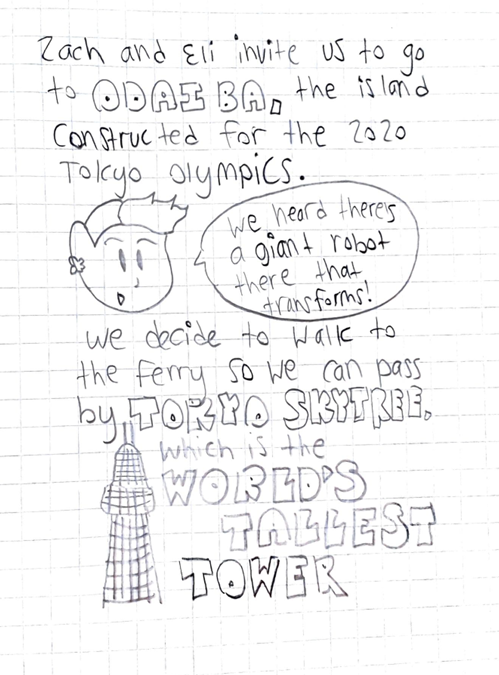 Zach and Eli invite us to go
to ODAIBA, the island
constructed for the 2020
Tokyo Olympics.
We heard there's
a giant robot
there that
transforms!
We decide to walk to
the ferry so we can pass
by TOKYO SKYTREE,
which is the
WORLD'S
TALLEST
TOWER